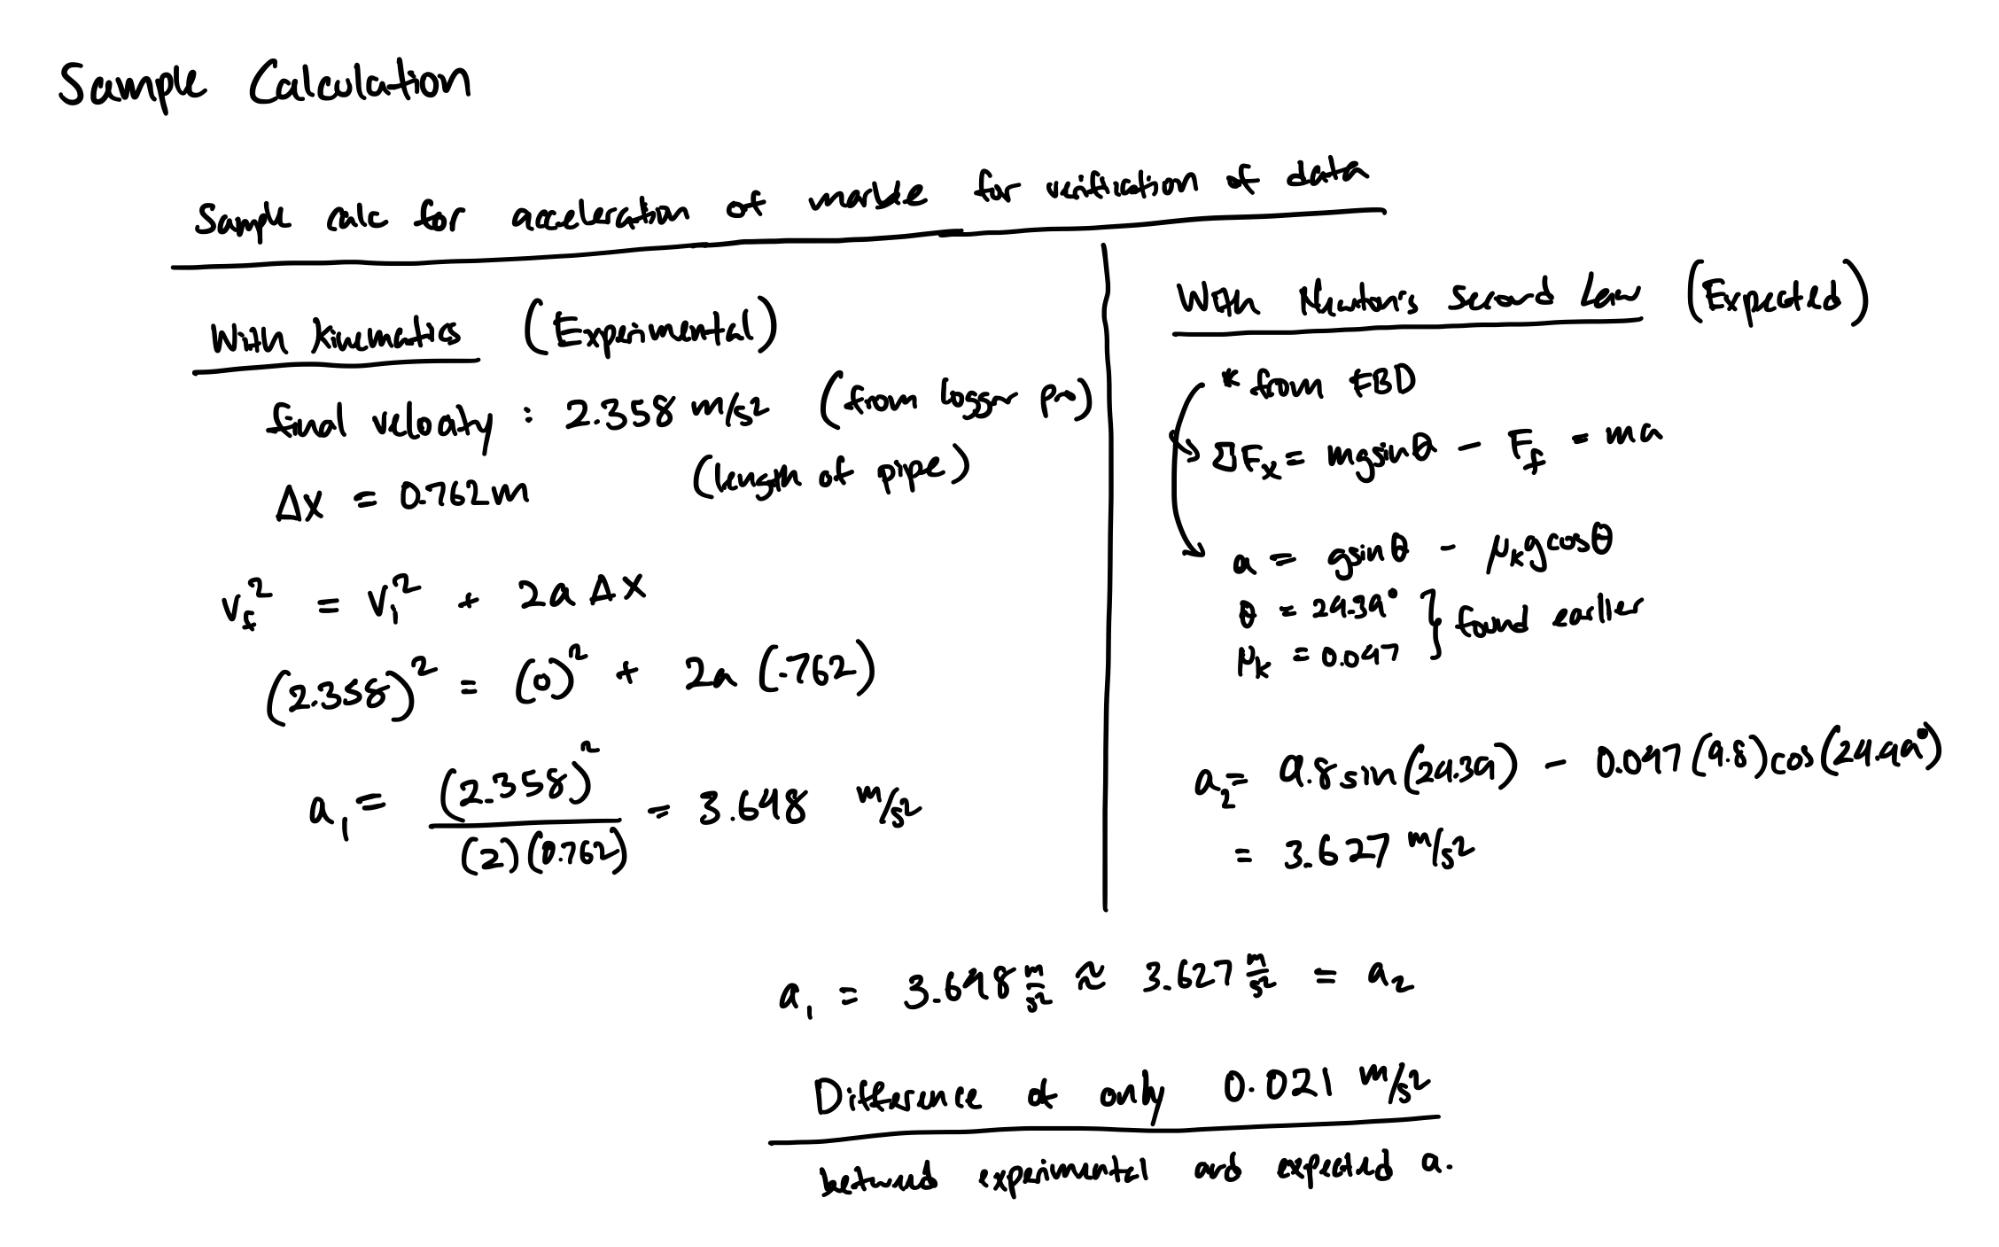 Sample Calculation
Sample calc for acceleration of marble for verification of data
With Kinematics (Experimental)
final velocity : 2.358 m/s² (from logger pro)
Δx = 0.762m (length of pipe)
v_f² = v_i² + 2aΔx
(2.358)² = (0)² + 2a (.762)
a₁ = (2.358)² / (2)(0.762) = 3.648 m/s²
With Newton's Second Law (Expected)
* from FBD
ΣFx = mgsinθ - F_f = ma
a = gsinθ - μ_k gcosθ
θ = 24.39° } found earlier
μ_k = 0.047
a₂ = 9.8sin(24.39) - 0.047(9.8)cos(24.49°)
= 3.627 m/s²
a₁ = 3.648 m/s² ≈ 3.627 m/s² = a₂
Difference of only 0.021 m/s²
between experimental and expected a.